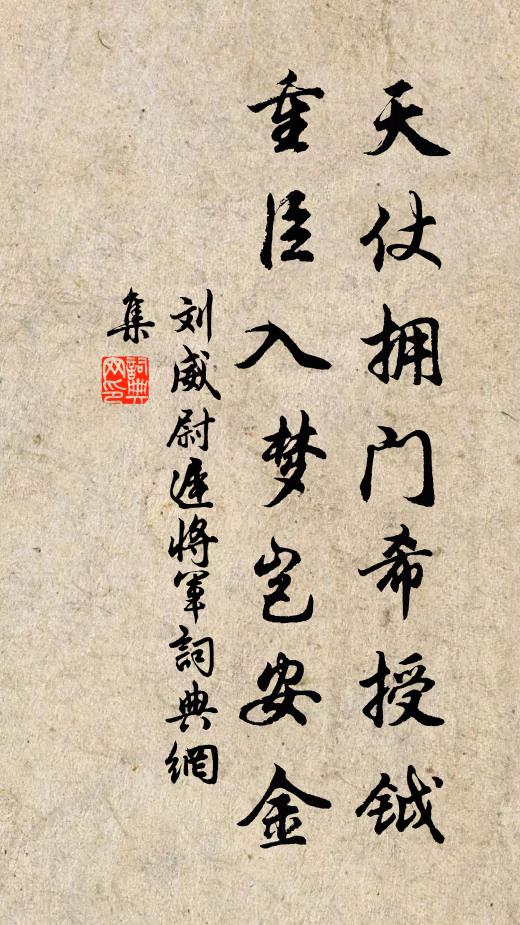 天仗拥门希授钺
重臣入梦岂安金
刘威尉遲将军詞典網
集
詞典
网印